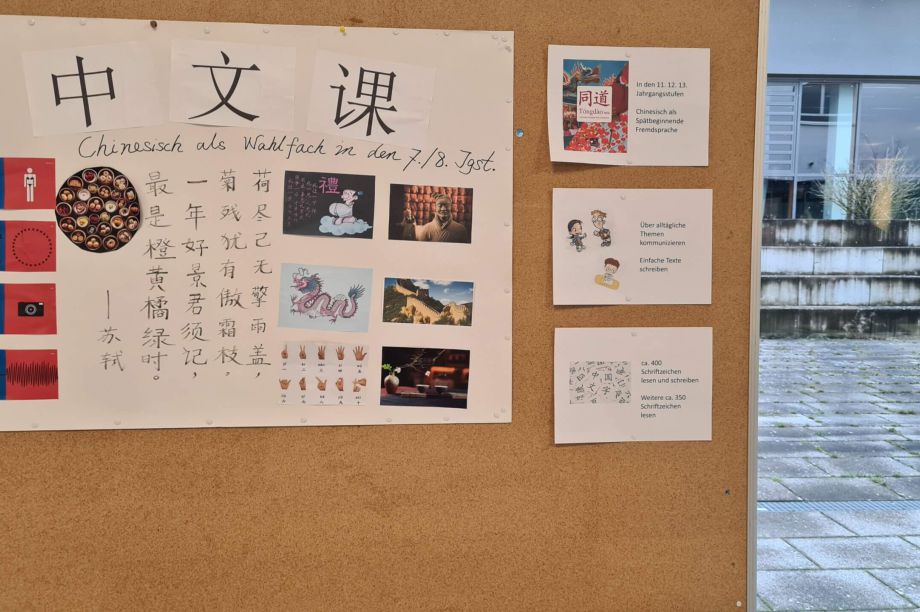 中文课
Chinesisch als Wahlfach in den 7./8. Jgst.
荷尽己无擎雨盖,
菊残犹有傲霜枝。
一年好景君须记,
最是橙黄橘绿时。
—苏轼
禮
同道
Tóngdào
In den 11. 12. 13.
Jahrgangsstufen
Chinesisch als
Spätbeginnende
Fremdsprache
Über alltägliche
Themen
kommunizieren
Einfache Texte
schreiben
ca. 400
Schriftzeichen
lesen und schreiben
Weitere ca. 350
Schriftzeichen
lesen